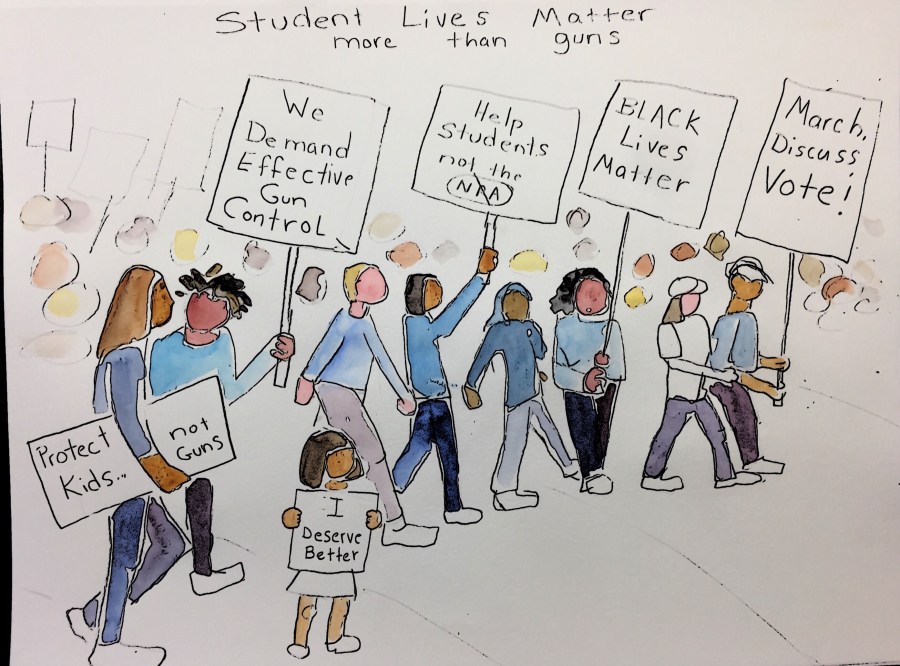 Student Lives Matter
more than guns
We
Demand
Effective
Gun
Control
Help
Students
not the
NRA
BLACK
Lives
Matter
March,
Discuss
Vote!
Protect
Kids...
not
Guns
I
Deserve
Better